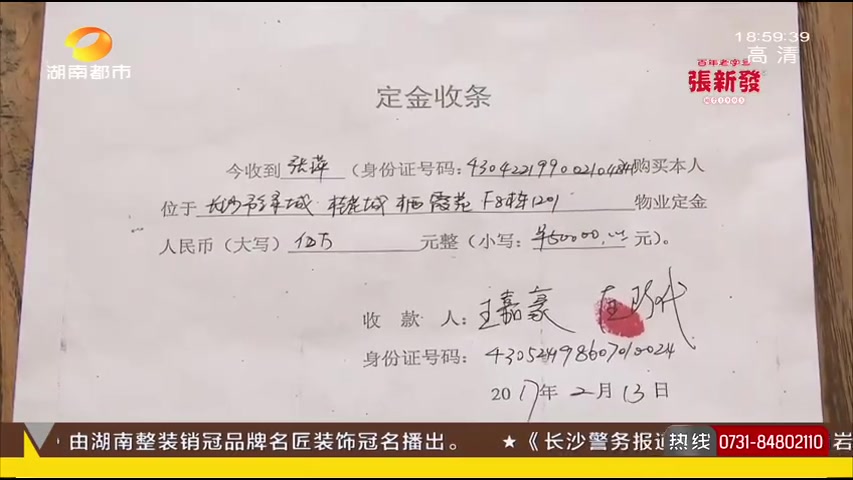 18:59:39
高清
湖南都市
百年老字号
張新發
定金收条
今收到 张萍 （身份证号码：购买本人
位于 长沙市 栖霞苑 F8栋1201 物业定金
人民币（大写） 伍万 元整（小写：¥50000.00 元）。
收款人：王嘉豪
身份证号码：
2017年 2月 13日
由湖南整装销冠品牌名匠装饰冠名播出。 ★《长沙警务报道
热线 0731-84802110 岩